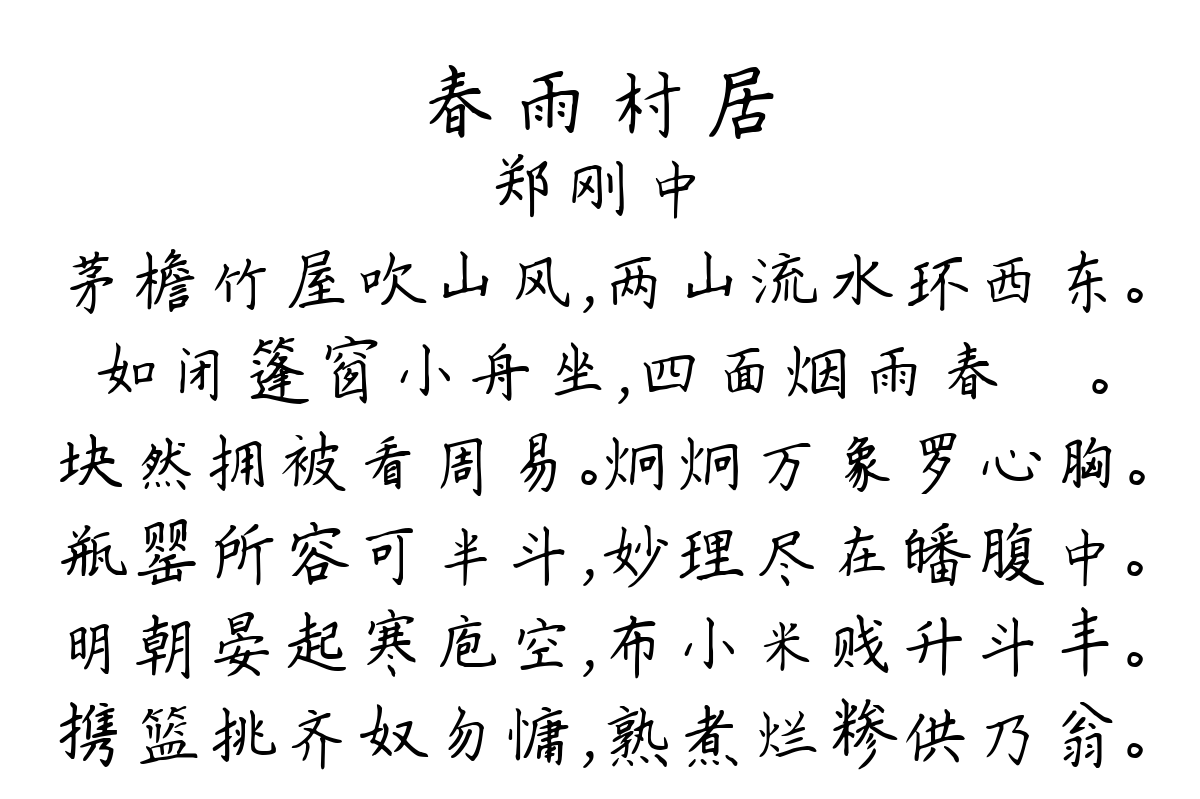 春雨村居
郑刚中
茅檐竹屋吹山风,两山流水环西东。
如闭篷窗小舟坐,四面烟雨春 。
块然拥被看周易。炯炯万象罗心胸。
瓶罂所容可半斗,妙理尽在皤腹中。
明朝晏起寒庖空,布小米贱升斗丰。
携篮挑齐奴勿慵,熟煮烂糁供乃翁。